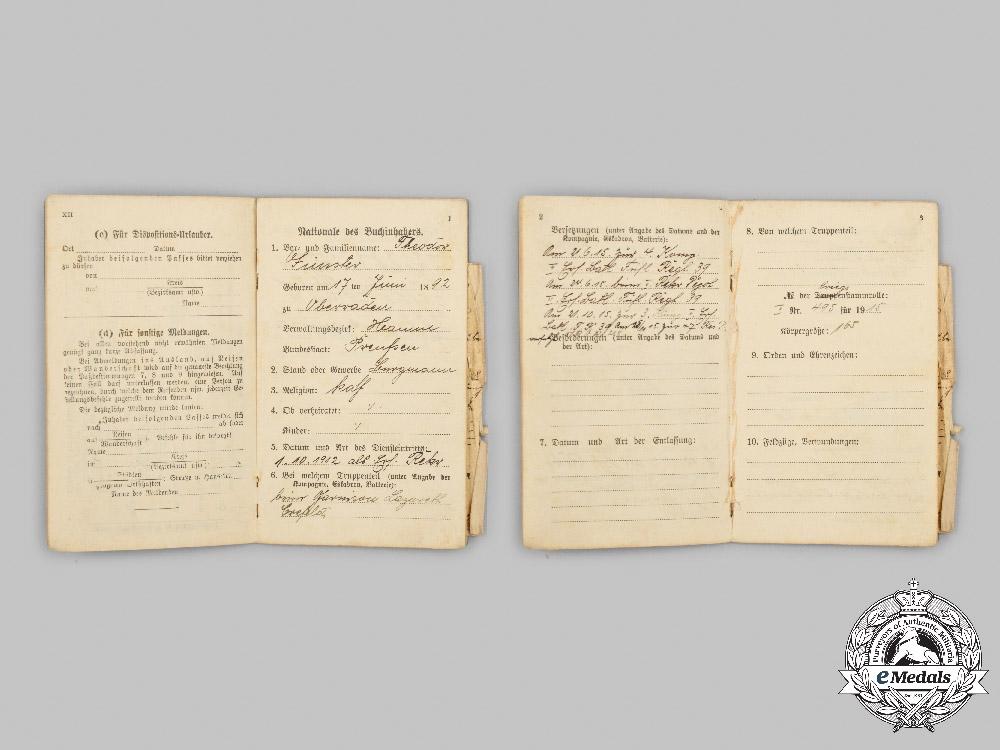 XII
(c) Für Dispositions-Urlauber.
Ort Datum
Inhaber beifolgenden Passes bittet verziehen
zu dürfen
von
nach
Kreis
(Bezirksamt usw.)
Name
(d) Für sonstige Meldungen.
Bei allen vorstehend nicht erwähnten Meldungen
genügt ganz kurze Abfassung.
Bei Abmeldungen ins Ausland, auf Reisen
oder Wanderschaft wird auf die genaueste Beachtung
der Paßbestimmungen 7, 8 und 9 hingewiesen. Auf
keinen Fall darf unterlassen werden, eine Person zu
bezeichnen, durch welche dem Reisenden usw. jederzeit Ge-
stellungsbefehle zugestellt werden können.
Die bezügliche Meldung würde lauten:
Inhaber beifolgenden Passes meldet sich
nach ab
auf Reisen
Wanderschaft Befehle für ihn besorgt
Name
in Kreis
(Bezirksamt usw.)
Straße u. Hausnr.
Name des Meldenden
I
Nationale des Buchinhabers.
1. Vor- und Familienname: Theodor
Fünster
Geboren am 17 ten Juni 1892
zu Oberaden
Verwaltungsbezirk: Hamm
Bundesstaat: Preußen
2. Stand oder Gewerbe Bergmann
3. Religion: kath
4. Ob verheiratet: /
Kinder: /
5. Datum und Art des Diensteintritts:
1.10.1912 als Ers. Rekr
6. Bei welchem Truppenteil (unter Angabe der
Kompagnie, Eskadron, Batterie):
beim Garnison Lazareth
Crefeld
2
Versetzungen (unter Angabe des Datums und der
Kompagnie, Eskadron, Batterie):
Am 21.6.15. zur 4. Komp
I Ers. Batl. Füsl. Regt 39
Am 24.6.15. beim I Rekr Depot
I. Ers. Batl. Füsl. Regt 39
Am 21.10.15. zur 3. Komp I. Ers.
Beförderungen (unter Angabe des Datums und
der Art):
7. Datum und Art der Entlassung:
3
8. Von welchem Truppenteil:
Kriegs
№ der Truppenstammrolle:
I Nr. 495 für 1915
Körpergröße: 165
9. Orden und Ehrenzeichen:
10. Feldzüge, Verwundungen:
Purveyors of Authentic Militaria
eMedals